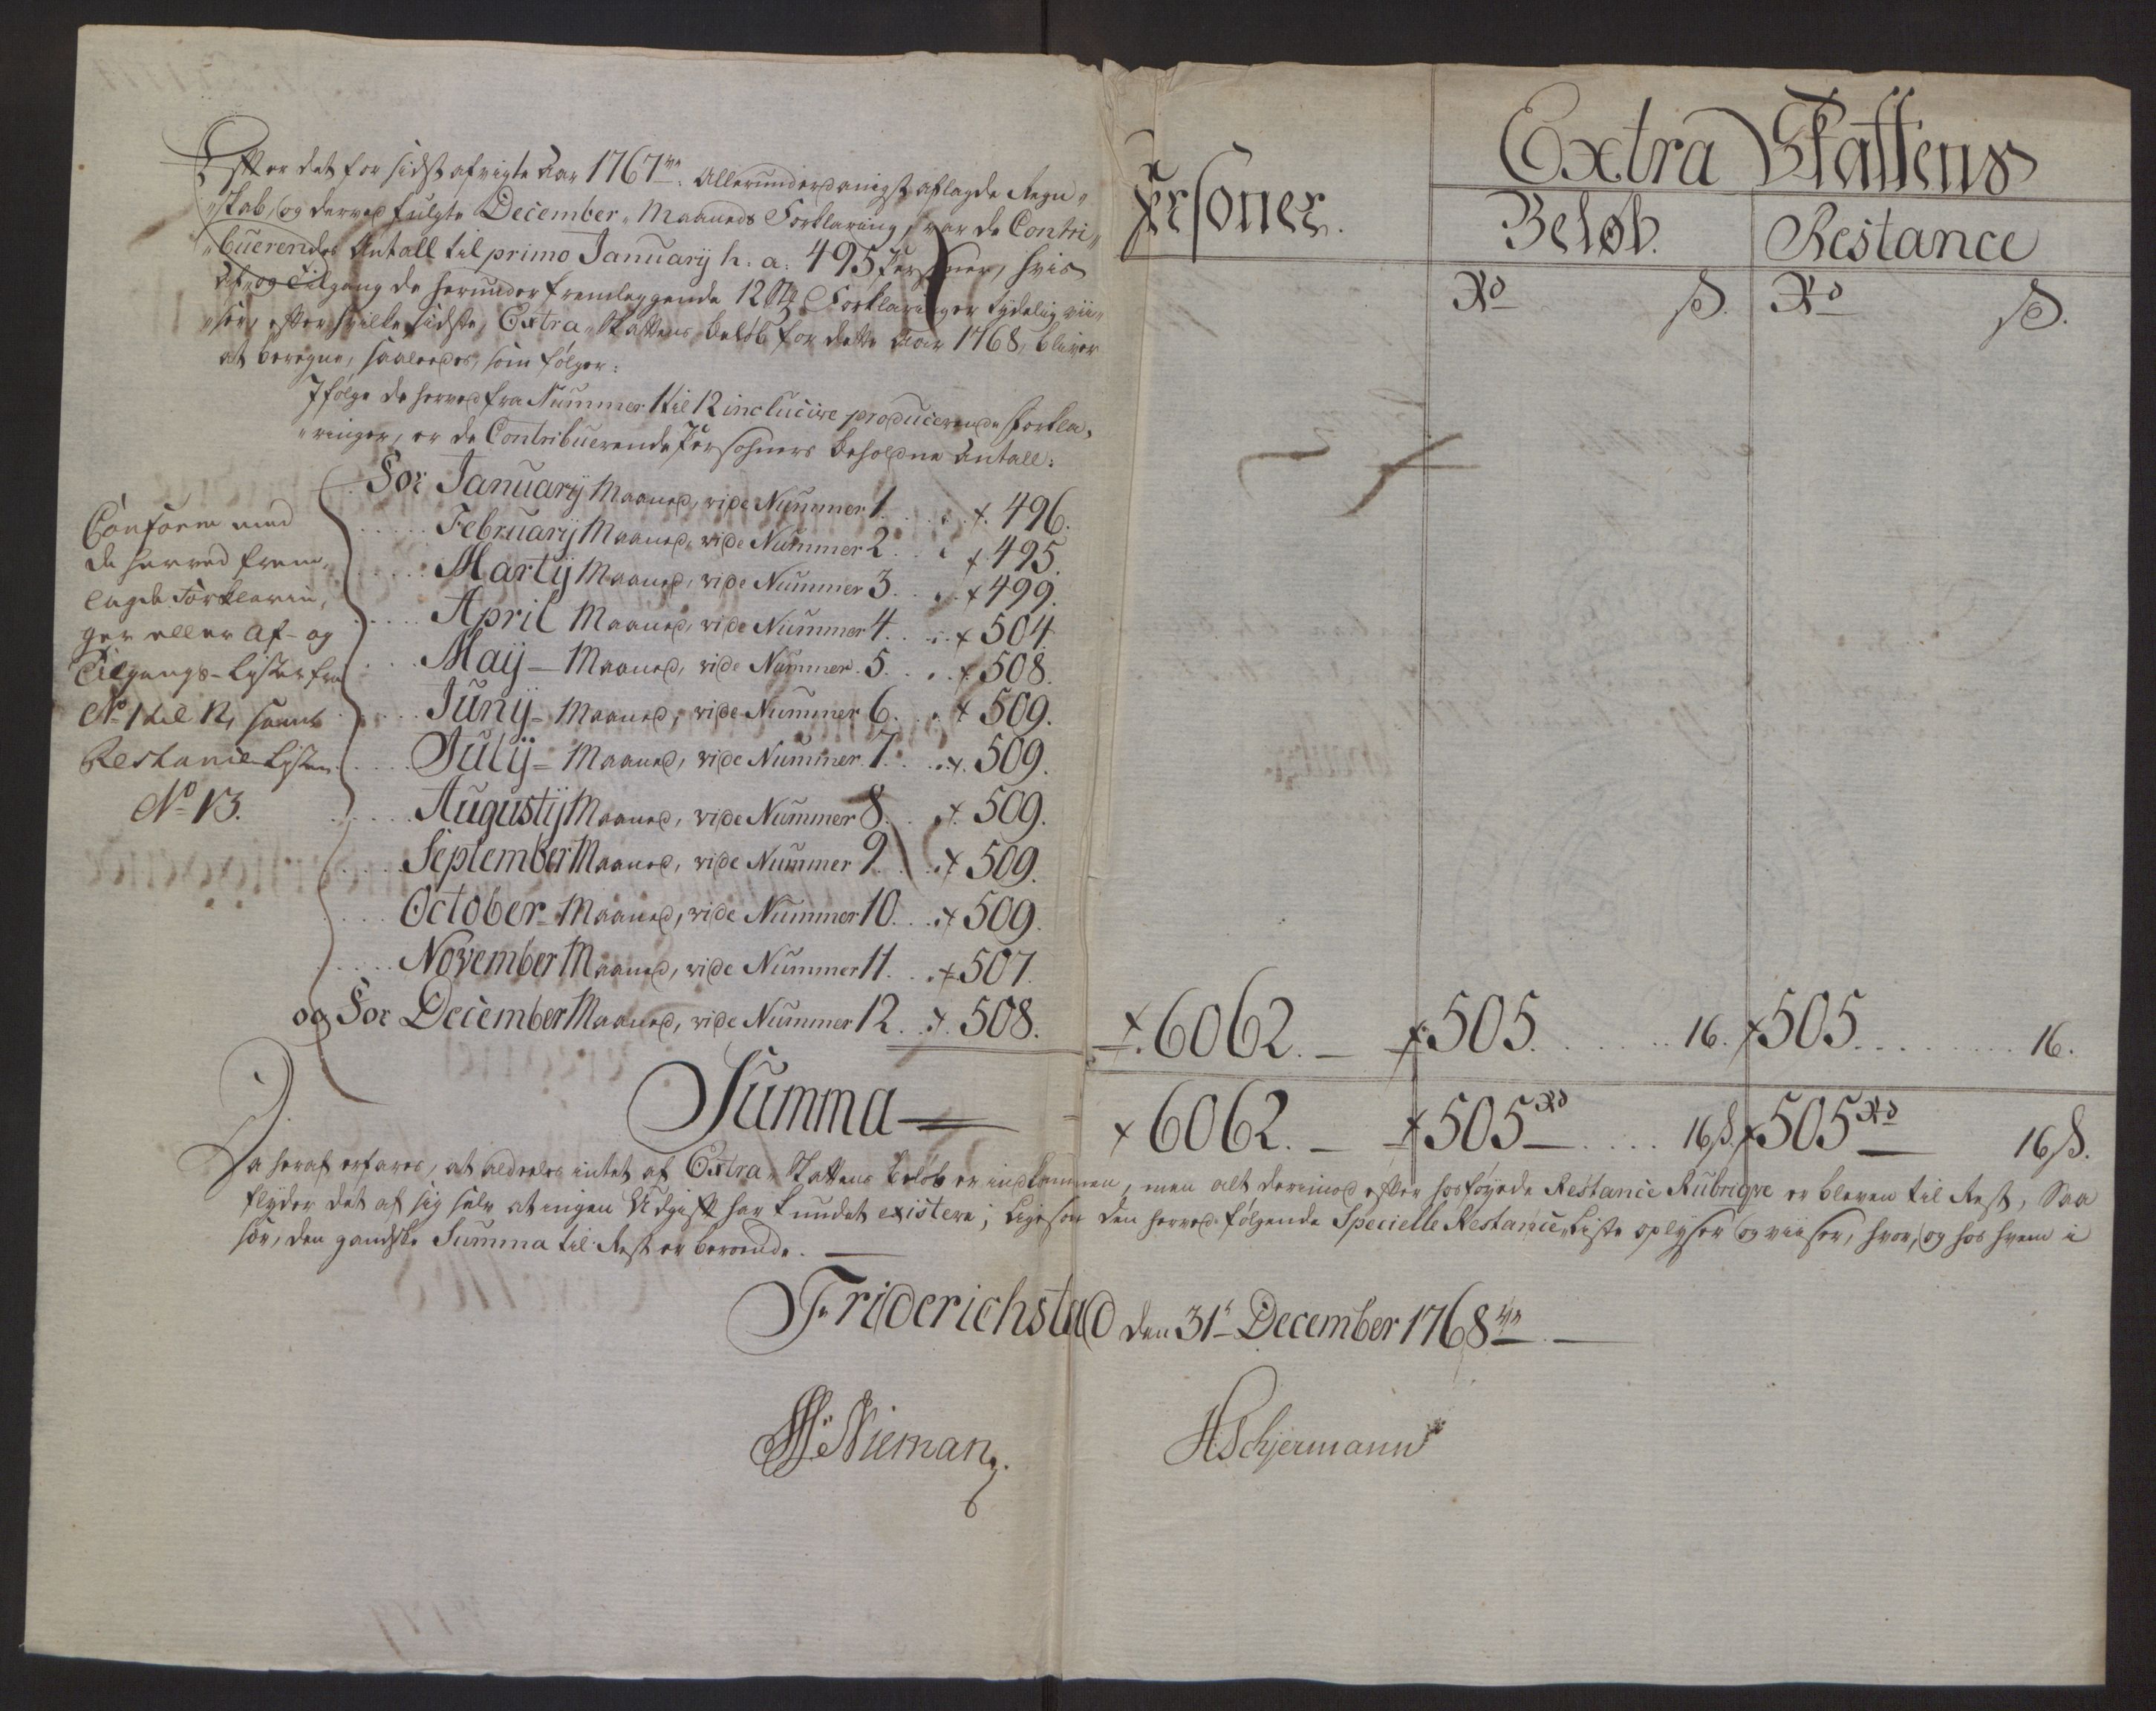 Efter det for sidst afvigte Aar 1767ve. Allerunderdanigst aflagde Regn„
„skab, og derved fulgte December„ Maaneds Forklaring, var de Contri„
„buerendes Antall til primo Januarij h. a: 495 Personer, hvis
Af- og Tilgang de herunder fremlæggende 12 Stk Forklaringer tydelig vii„
„ser, efter hvilke sidste, Extra„ Skattens beløb for dette Aar 1768, bliver
at beregne, saaledes, som følger:
Ifølge de herved fra Nummer 1 til 12 inclusive producerende Forkla„
„ringer, er de Contribuerende Persohners beholdne Antall:
Conform med
de herved frem„
lagde Forklarin„
ger eller Af- og
Tilgangs-Lister fra
No 1 til 12, samt
Restance Listen
No 13.
For Januarij Maaned, vide Nummer 1. . . . 496.
Februarij Maaned, vide Nummer 2 . . . 495.
Martij Maaned, vide Nummer 3 . . . 499.
April Maaned, vide Nummer 4 . . . 504.
Maij Maaned, vide Nummer 5 . . . 508.
Junij Maaned, vide Nummer 6 . . . 509.
Julij Maaned, vide Nummer 7 . . . 509.
Augustij Maaned, vide Nummer 8. . . 509.
September Maaned, vide Nummer 9. . . 509.
October Maaned, vide Nummer 10. . . 509.
November Maaned, vide Nummer 11. . . 507.
og For December Maaned, vide Nummer 12. . . 508.
Personer.
Extra Skattens
Beløb. Restance
Rd ß. Rd ß.
6062. — 505. . . . . 16. 505. . . . . 16.
Summa — 6062. — 505 Rd . . . . 16 ß. 505 Rd — 16 ß.
Da heraf erfares, at aldeeles intet af Extra„ Skattens beløb er indkommen, men alt derimod efter hosføyede Restance Rubriqve er bleven til Rest, Saa
flyder det af sig selv at ingen Udgift har kundet existere; Ligesom den herved følgende Specielle Restance„Liste oplyser og viiser, hvor, og hos hvem i
sær, den gandske Summa til Rest er beroende. —
Friderichstad den 31te December 1768ve. —
Nieman
HSchjermann